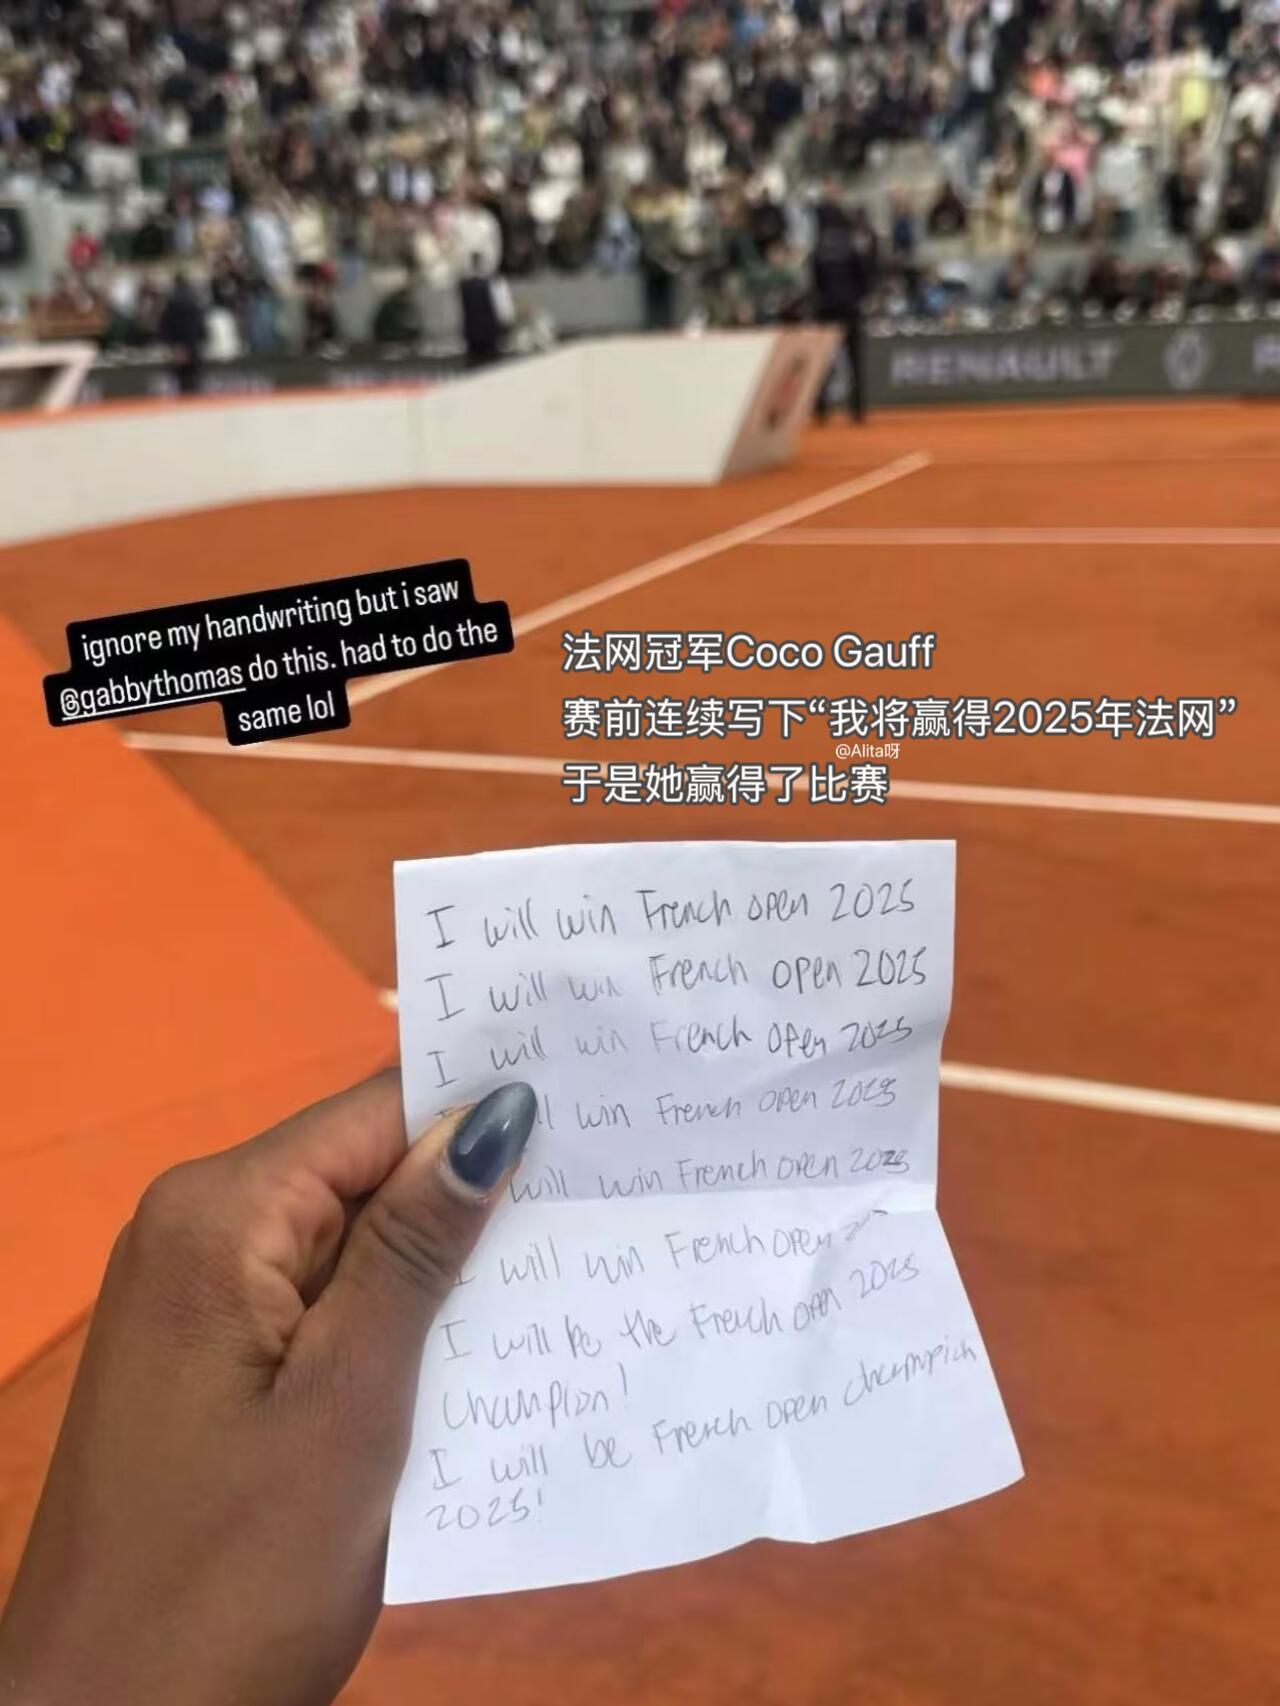 RENAULT
ignore my handwriting but i saw
@gabbythomas do this. had to do the
same lol
法网冠军Coco Gauff
赛前连续写下“我将赢得2025年法网”
@Alita呀
于是她赢得了比赛
I will win French open 2025
I will win French open 2025
I will win French open 2025
win French open 2025
will win French open 2025
I will win French open
I will be the French open 2025
Champion!
I will be French open champion
2025!